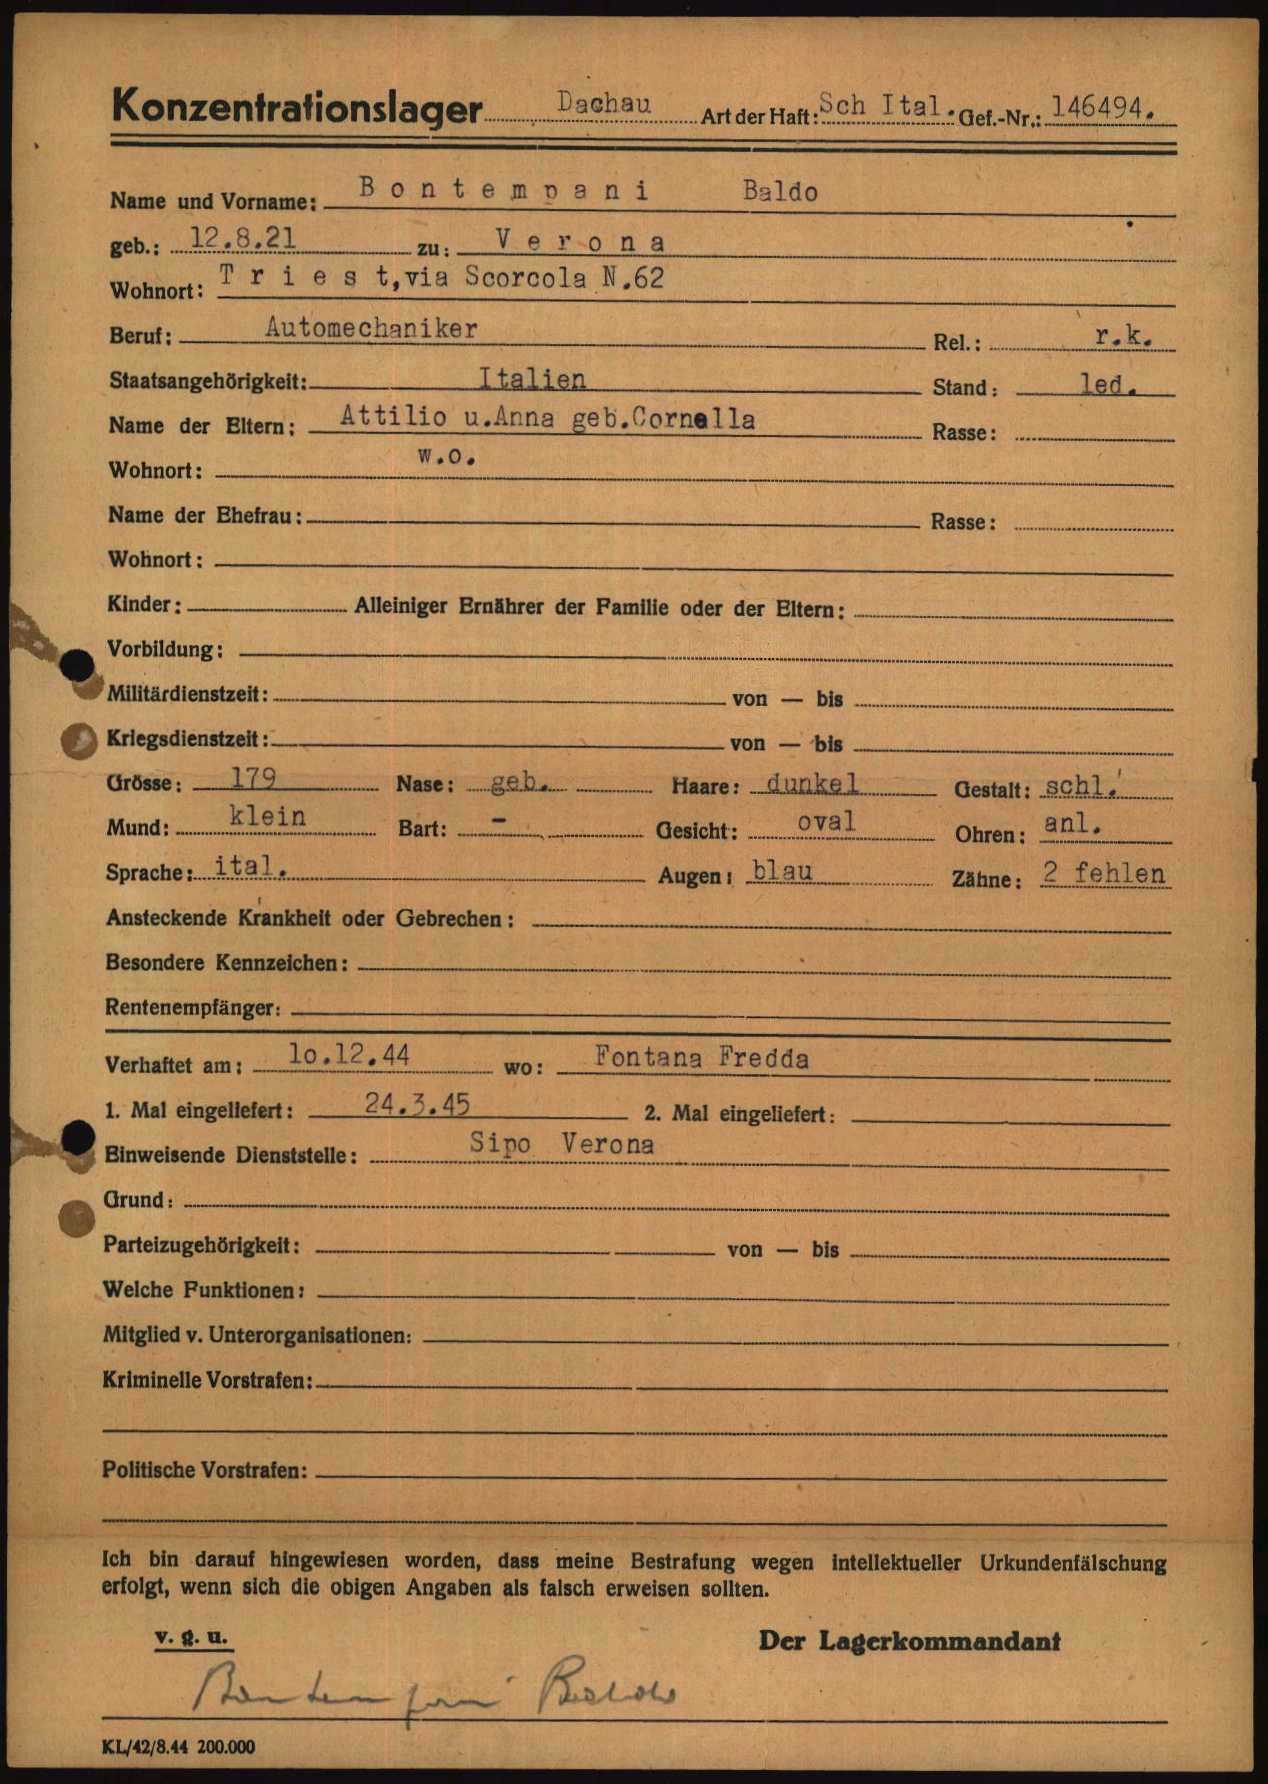 Konzentrationslager Dachau Art der Haft: Sch Ital. Gef.-Nr.: 146494.
Name und Vorname: Bontempani Baldo
geb.: 12.8.21 zu: Verona
Wohnort: Triest, via Scorcola N.62
Beruf: Automechaniker Rel.: r.k.
Staatsangehörigkeit: Italien Stand: led.
Name der Eltern: Attilio u.Anna geb.Cornella Rasse:
Wohnort: w.o.
Name der Ehefrau: Rasse:
Wohnort:
Kinder: Alleiniger Ernährer der Familie oder der Eltern:
Vorbildung:
Militärdienstzeit: von — bis
Kriegsdienstzeit: von — bis
Grösse: 179 Nase: geb. Haare: dunkel Gestalt: schl.
Mund: klein Bart: - Gesicht: oval Ohren: anl.
Sprache: ital. Augen: blau Zähne: 2 fehlen
Ansteckende Krankheit oder Gebrechen:
Besondere Kennzeichen:
Rentenempfänger:
Verhaftet am: lo.12.44 wo: Fontana Fredda
1. Mal eingeliefert: 24.3.45 2. Mal eingeliefert:
Einweisende Dienststelle: Sipo Verona
Grund:
Parteizugehörigkeit: von — bis
Welche Funktionen:
Mitglied v. Unterorganisationen:
Kriminelle Vorstrafen:
Politische Vorstrafen:
Ich bin darauf hingewiesen worden, dass meine Bestrafung wegen intellektueller Urkundenfälschung
erfolgt, wenn sich die obigen Angaben als falsch erweisen sollten.
v. g. u. Der Lagerkommandant
Bontempani Baldo
KL/42/8.44 200.000